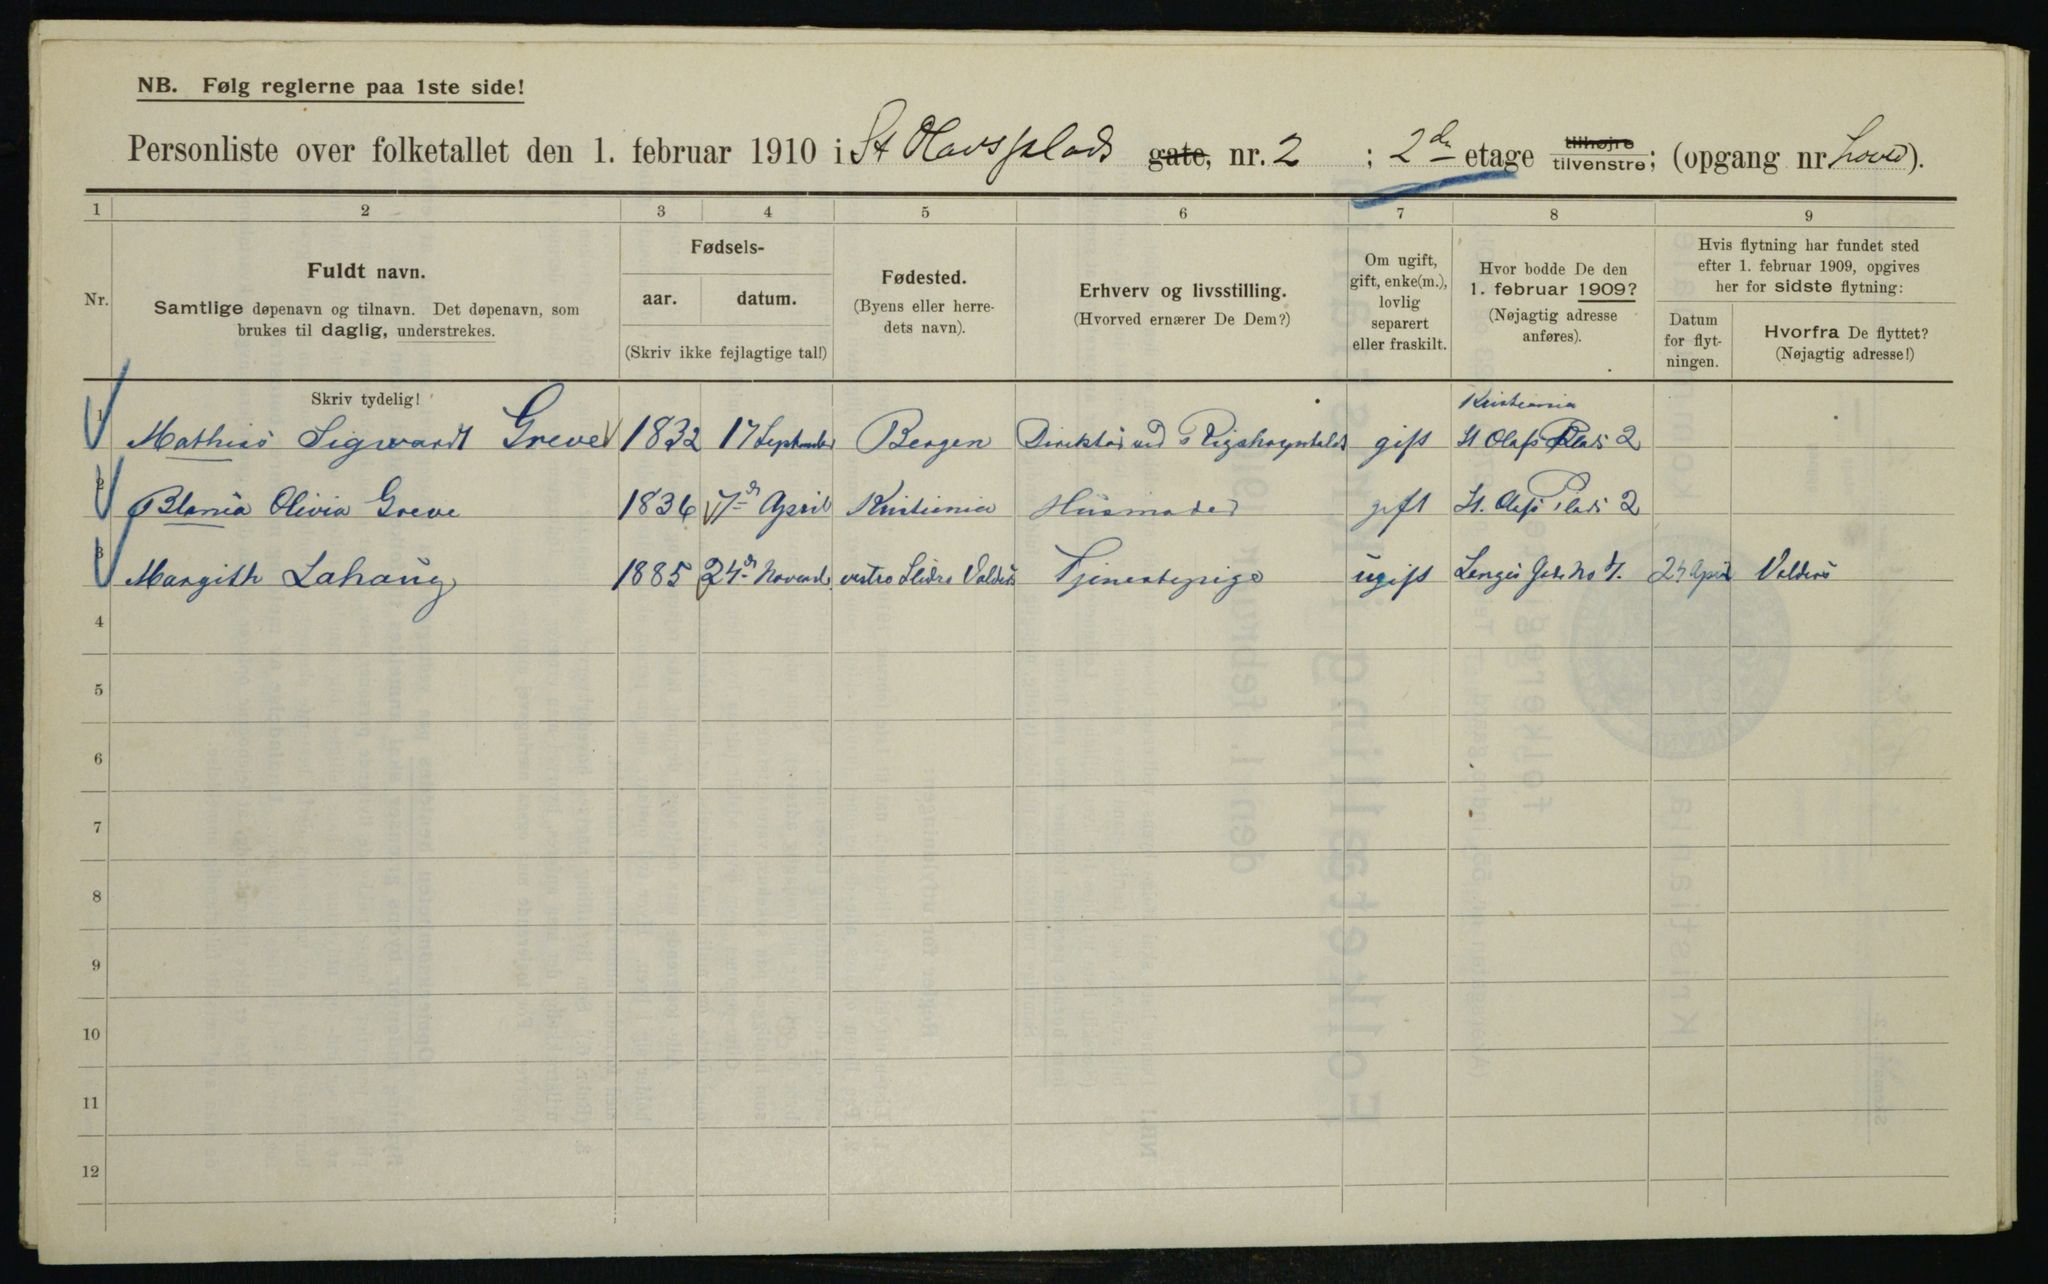 NB. Følg reglerne paa 1ste side!
Personliste over folketallet den 1. februar 1910 i St Olavsplads gate, nr. 2 ; 2den etage tilhøjre tilvenstre; (opgang nr. Hoved).
1 2 3 4 5 6 7 8 9
Nr.
Fuldt navn.
Samtlige døpenavn og tilnavn. Det døpenavn, som
brukes til daglig, understrekes.
Skriv tydelig!
Fødsels-
aar. datum.
(Skriv ikke fejlagtige tal!)
Fødested.
(Byens eller herre-
dets navn).
Erhverv og livsstilling.
(Hvorved ernærer De Dem?)
Om ugift,
gift, enke(m.),
lovlig
separert
eller fraskilt.
Hvor bodde De den
1. februar 1909?
(Nøjagtig adresse
anføres).
Hvis flytning har fundet sted
efter 1. februar 1909, opgives
her for sidste flytning:
Datum
for flyt-
ningen.
Hvorfra De flyttet?
(Nøjagtig adresse!)
Kristiania
1 Mathias Sigwardt Greve 1832 17 September Bergen Direktør ved Rigshospitalet gift St Olafs Plads 2
2 Olivia Greve 1836 7de April Kristiania Husmoder gift St. Olafs Plads 2
3 Margith Lahaug 1885 24de Novemb. vestre Slidre Valders Tjenestepige ugift Langes Gade No 24 April Valders
4
5
6
7
8
9
10
11
12